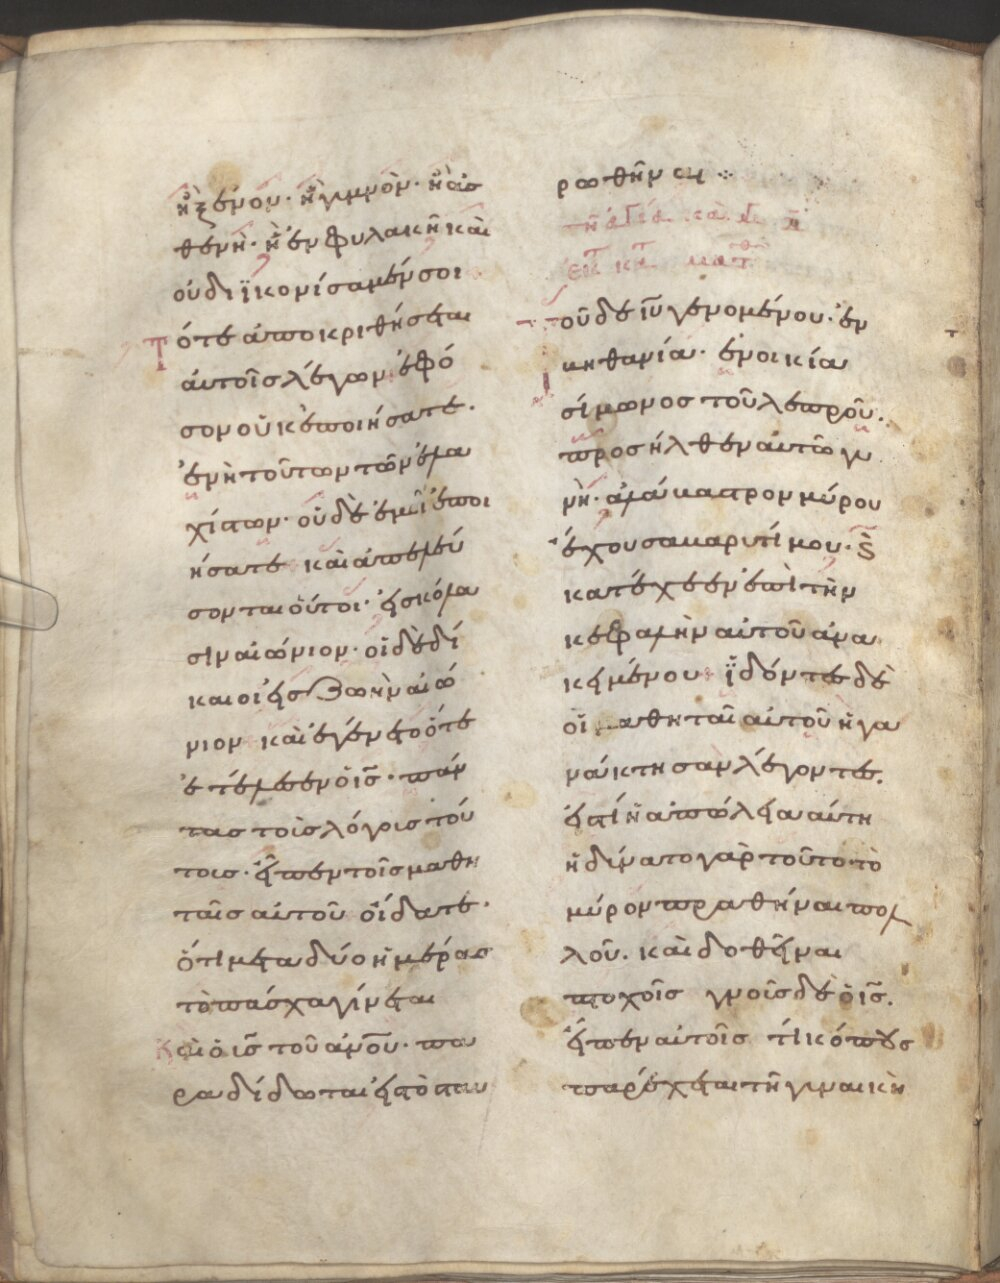 ἢ ξένον· ἢ γυμνὸν· ἢ ἀσ
θενὴ· ἢ ἐν φυλακῆ καὶ
οὐ διϊκονίσαμέν σοι
Τότε ἀποκριθήσεται
αυτοῖς λέγων ἐφό
σον οὐκ ἐποιήσατε.
ἐνὴ τούτων τῶν ἐλα
χίστων· οὐδὲ ἐμοὶ ἐποι
ήσατε καὶ ἀπελεύ
σονται οὗτοι· εἰς κόλα
σιν αἰώνιον· οἱ δὲ δί
καιοι εἰς ζωὴν αἰώ
νιον καὶ ἐγένετο ὅτε
ἐτέλεσεν ὁ ις̅· πάν
τας τοὺς λόγους τού
τους· εἶπεν τοῖς μαθη
ταῖς αὐτοῦ οἴδατε·
ὅτι μετα δύο ἡμέρας
τὸ πάσχα γίνεται
Καὶ ὁ υις̅ τοῦ ἀνο̅υ· πα
ραδίδωται εἰς τὸ σταυ
ρωθῆνει ⁘
τοῦ δὲ ιυ̅ γενομένου· ἐν
βηθανία· ἐν οικία
σίμωνος τοῦ λεπροῦ.
προσήλθεν αυτῶ γυ
νὴ· ἀλάβαστρον μύρου
ἔχουσα βαρυτίμου· ϗ̀
κατέχεεν ἐπὶ τὴν
κεφαλὴν αὐτοῦ ἀνα
κειμένου ἰδόντες δὲ
οἱ μαθηταὶ αὐτοῦ ἠγα
νάκτησαν λέγοντες.
εἰς τί ἡ ἀπώλεια αὕτη
ἠδύνατο γὰρ τοῦτο τὸ
μύρον πραθήναι πολ
λοῦ. καὶ δοθεῖναι
πτοχοῖς γνοῖς δὲ ὁ ις̅.
εἶπεν αὐτοῖς τί κόπους
παρέχεται τῆ γυναικὴ